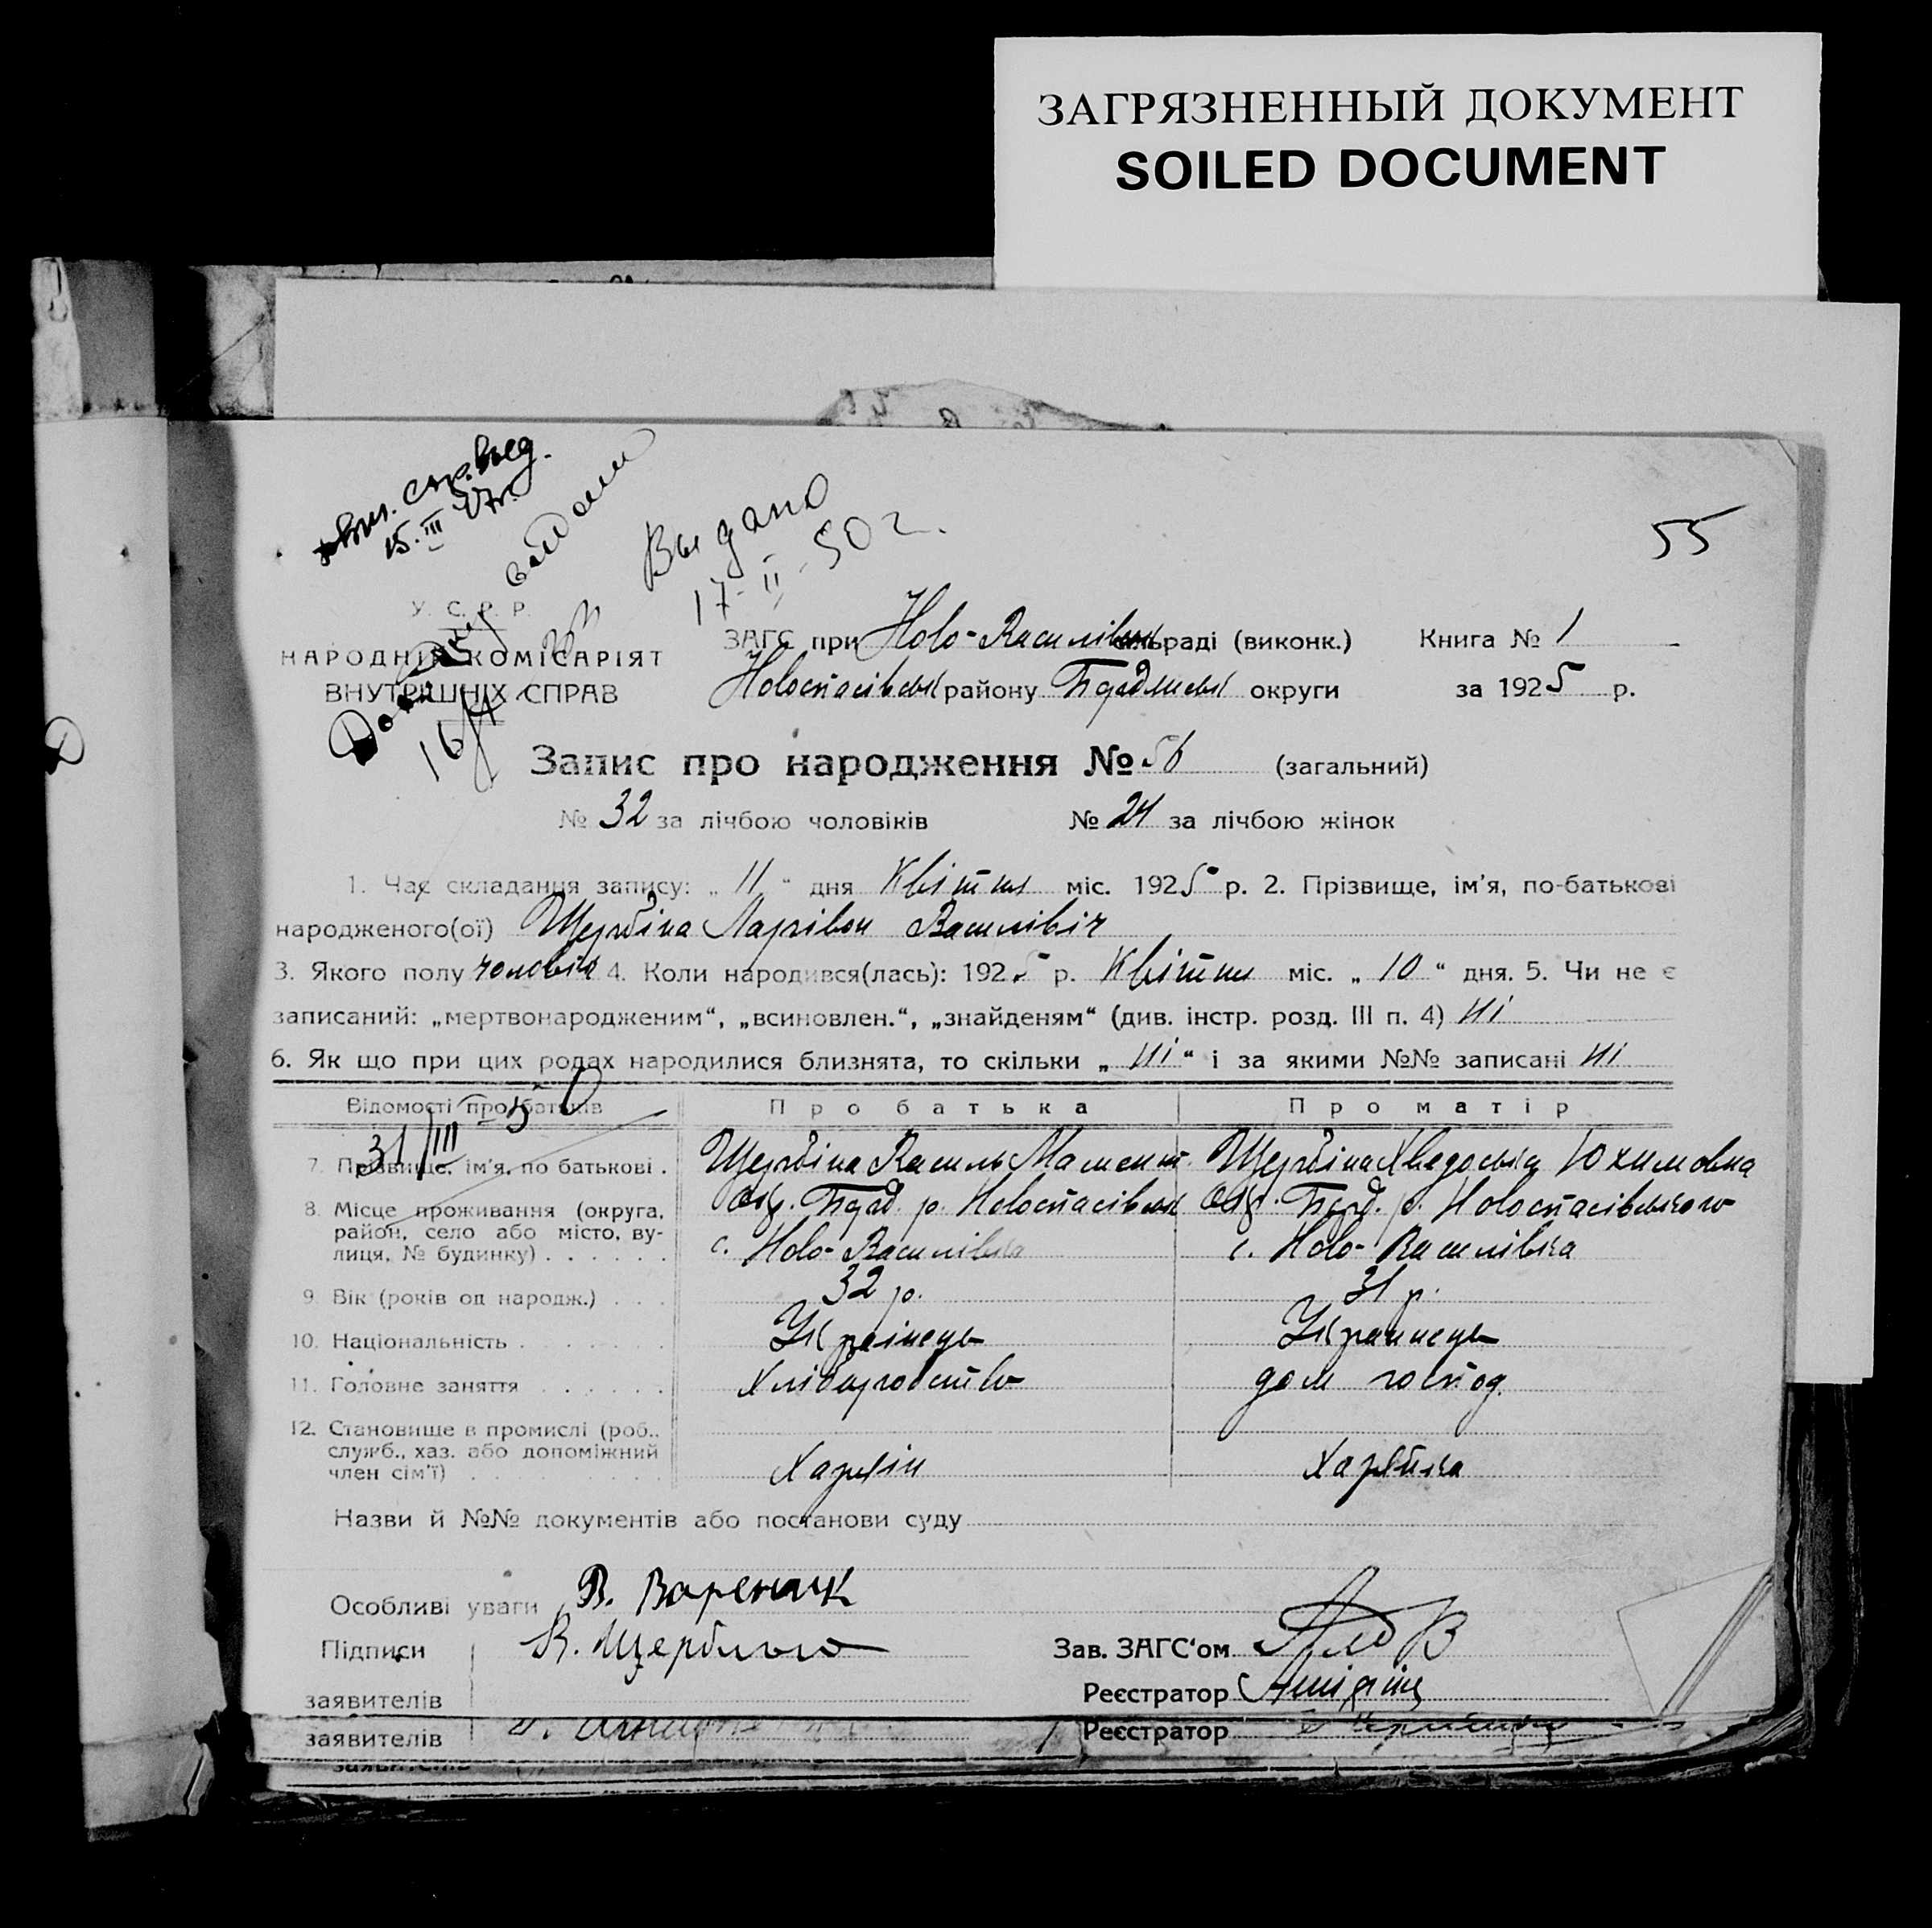 ЗАГРЯЗНЕННЫЙ ДОКУМЕНТ
SOILED DOCUMENT
15. III 47г.
Выдано
17-II-50 г.
55
У. С. Р. Р.
НАРОДНІЙ КОМІСАРІЯТ
ВНУТРІШНІХ СПРАВ
ЗАГС при Ново-Василівськ сільраді (виконк.) Книга № 1
Новоспасівськ району Бердянськ округи за 1925 р.
Запис про народження № 56 (загальний)
№ 32 за лічбою чоловіків № 24 за лічбою жінок
1. Час складання запису: „ 11 “ дня Квітня міс. 1925 р. 2. Прізвище, ім’я, по-батькові
народженого(ої) Щербіна Ларівон Василівіч
3. Якого полу чоловіч 4. Коли народився(лась): 1925 р. Квітня міс. „ 10 “ дня. 5. Чи не є
записаний: „мертвонародженим“, „всиновлен.“, „знайденям“ (див. інстр. розд. III п. 4) ні
6. Як що при цих родах народилися близнята, то скільки „ ні “ і за якими №№ записані ні
Відомості про батьків Про батька Про матір
31/III
7. Прізвище, ім’я, по батькові . Щербіна Василь Щербіна Хведоська Юхимовна
8. Місце проживання (округа, Окр. Берд. р. Новоспасівськ Окр. Берд. р. Новоспасівського
район, село або місто, ву-
лиця, № будинку) . . . . . . с. Ново-Василівка с. Ново-Василівка
9. Вік (років од народж.) . . . 32 р. 31 р.
10. Національність . . . . . . . Українець Украинець
11. Головне заняття . . . . . . Хліборобство дом господ.
12. Становище в промислі (роб.,
служб., хаз. або допоміжний
член сім’ї) . . . . . . . . . Хазяїн Хазяйка
Назви й №№ документів або постанови суду
Особливі уваги В. Вареник
Підписи В. Щербина Зав. ЗАГС‘ом
заявителів Реєстратор
заявителів Реєстратор
заявителів